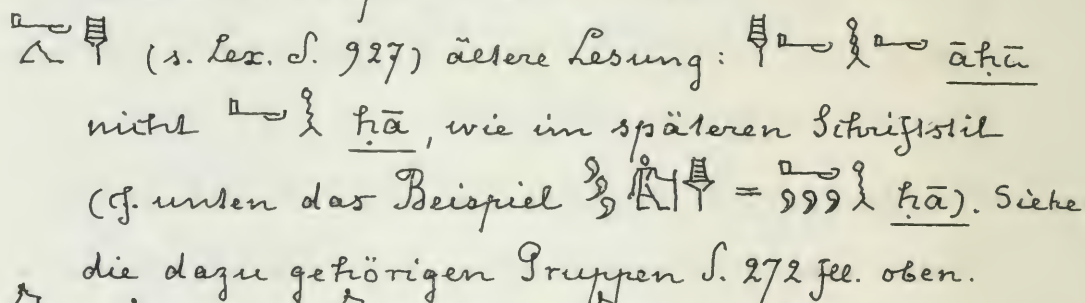 (s. Lex. S. 927) ältere Lesung: āḥā
nicht ḥā, wie im späteren Schriftstil
(cf. unten das Beispiel = ḥā). Siehe
die dazu gehörigen Gruppen S. 272 fll. oben.